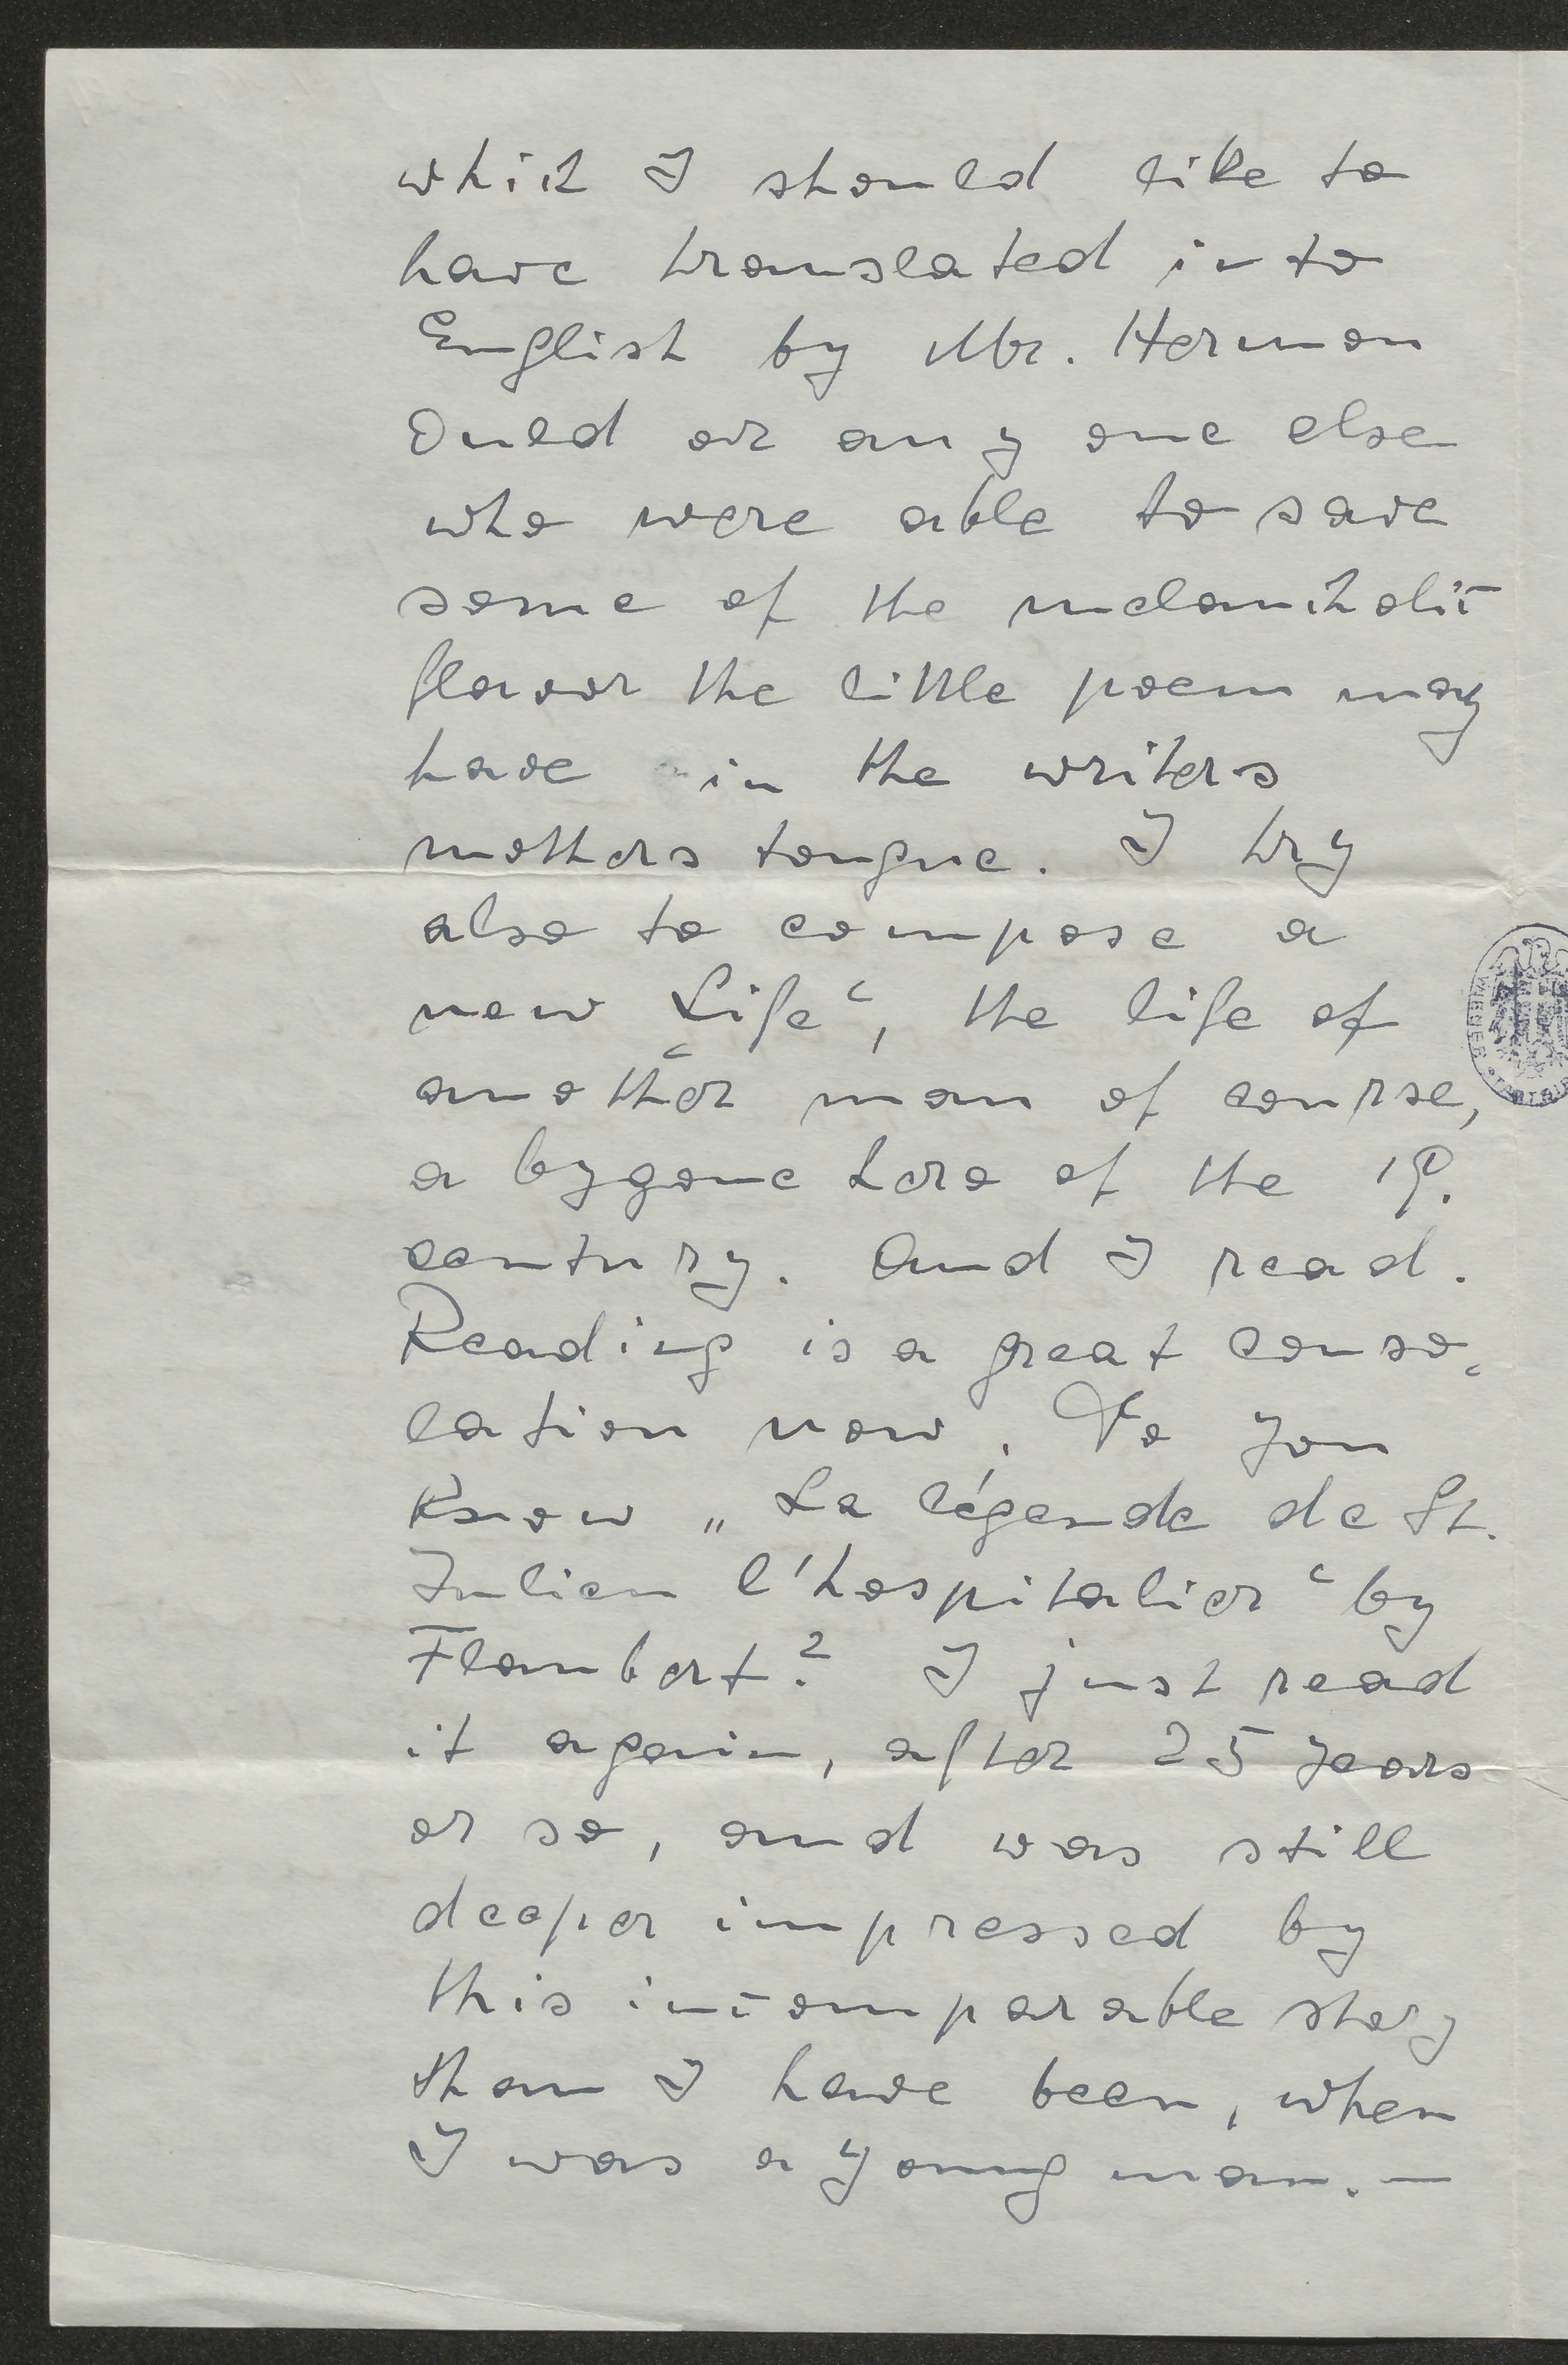 which I should like to
have translated into
English by Mr. Hermon
Ould or any one else
who were able to save
some of the melancholic
flavor the little poem may
have in the writers
mothers tongue. I try
also to compose a
new „Life“, the life of
another man of course,
a bygone hero of the 19.
century. And I read.
Reading is a great conso-
lation now. Do you
know „La légende de St.
Julien l'hospitalier“ by
Flaubert? I just read
it again, after 25 years
or so, and was still
deeper impressed by
this incomparable story
than I have been, when
I was a young man. —